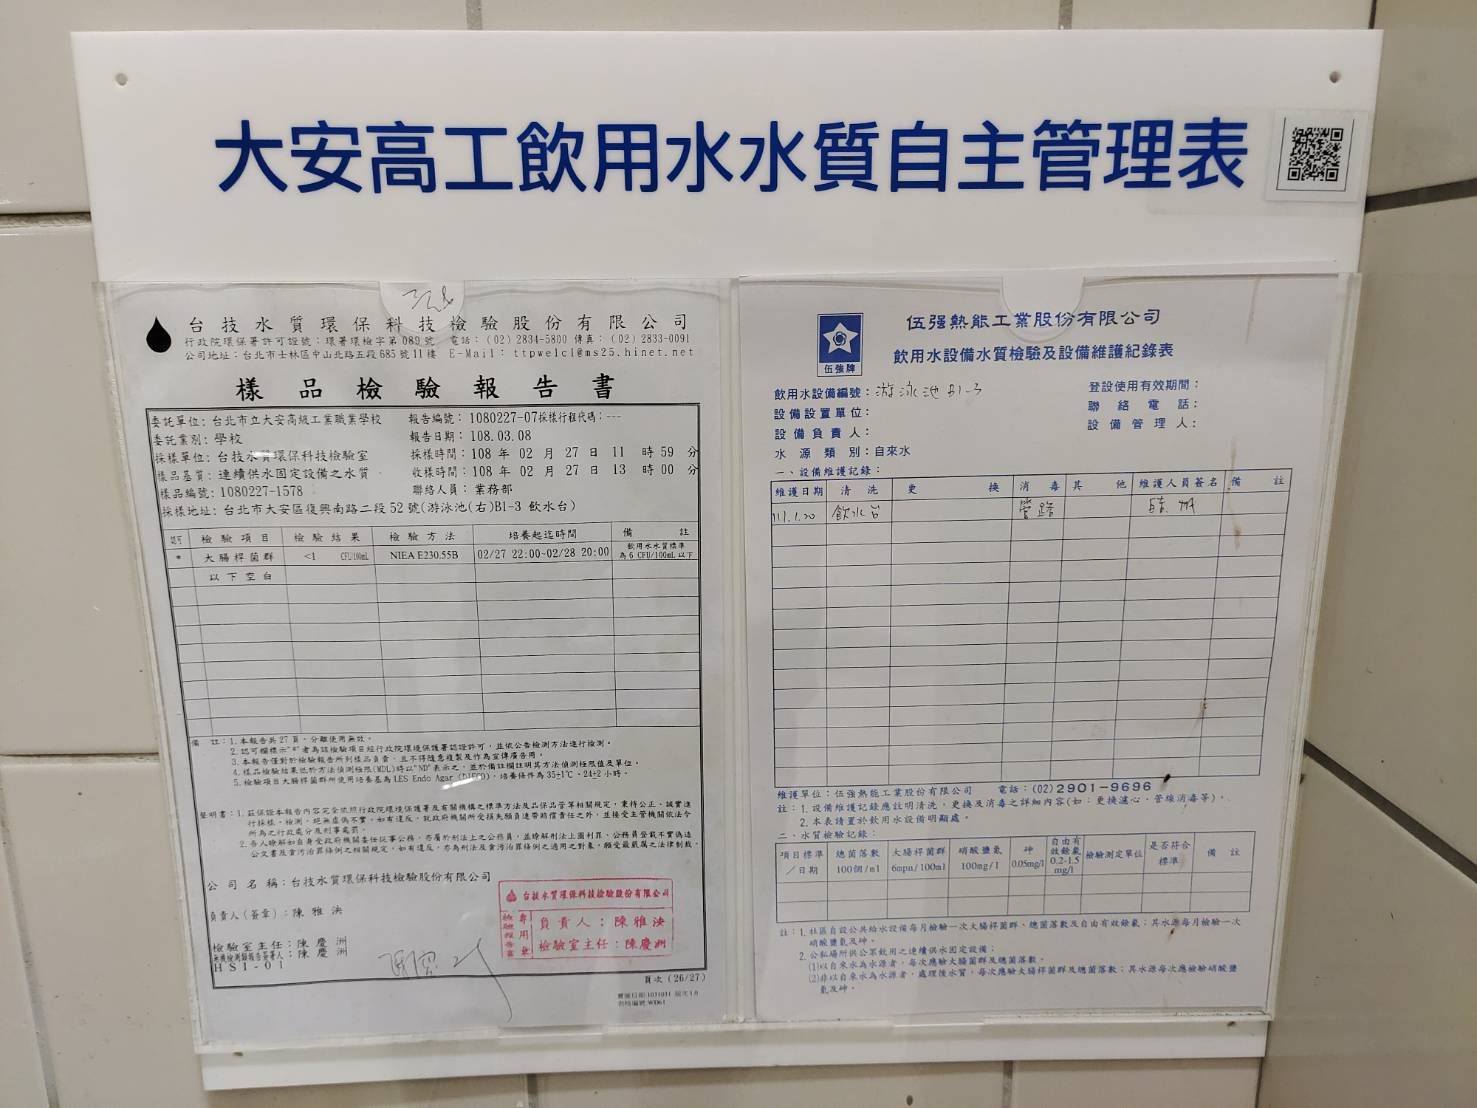 大安高工飲用水水質自主管理表
台技水質環保科技檢驗股份有限公司
行政院環保署許可證號：環署環檢字第 080 號 電話：（02）2834-5800 傳真：（02）2833-0091
公司地址：台北市士林區中山北路五段 685 號 11 樓 E-Mail：ttpwelcl@ms25.hinet.net
樣品檢驗報告書
委託單位：台北市立大安高級工業職業學校 報告編號：1080227-07採樣行程代碼：---
委託業別：學校 報告日期：108.03.08
採樣單位：台技水質環保科技檢驗室 採樣時間：108 年 02 月 27 日 11 時 59 分
樣品基質：連續供水固定設備之水質 收樣時間：108 年 02 月 27 日 13 時 00 分
樣品編號：1080227-1578 聯絡人員：業務部
採樣地址：台北市大安區復興南路二段 52 號(游泳池(右)B1-3 飲水台)
認可 檢驗項目 檢驗結果 檢驗方法 培養起迄時間 備註
* 大腸桿菌群 <1 CFU/100mL NIEA E230.55B 02/27 22:00~02/28 20:00 飲用水水質標準為 6 CFU/100mL 以下
以下空白
備註：1.本報告共 27 頁，分離使用無效。
2.認可欄標示"*"者為該檢驗項目經行政院環境保護署認證許可，並依公告檢測方法進行檢測。
3.本報告僅對於檢驗報告所列樣品負責，且不得隨意複製及作為宣傳廣告用。
4.樣品檢驗結果低於方法偵測極限(MDL)時以"ND"表示之，並於備註欄註明其方法偵測極限值及單位。
5.檢驗項目大腸桿菌群所使用培養基為 LES Endo Agar (DIFCO)，培養條件為 35±1℃、24±2 小時。
聲明書：1.茲保證本報告內容完全依照行政院環境保護署及有關機構之標準方法及品保品管等相關規定，秉持公正、誠實進
行採樣、檢測，絕無虛偽不實，如有違反，就政府機關所受損失願負連帶賠償責任之外，並接受主管機關依法令
所為之行政處分及刑事處罰。
2.吾人瞭解如自身受政府機關委任從事公務，亦屬於刑法上之公務員，並瞭解刑法上圖利罪、公務員登載不實偽造
公文書及貪污治罪條例之相關規定，如有違反，亦為刑法及貪污治罪條例之適用之對象，願受最嚴厲之法律制裁。
公司名稱：台技水質環保科技檢驗股份有限公司
負責人(簽章)：陳雅泱
檢驗室主任：陳慶洲
無機檢測類報告簽署人：陳慶洲
HSI-01
台技水質環保科技檢驗股份有限公司
檢驗報告專用章
負責人：陳雅泱
檢驗室主任：陳慶洲
頁次 (26/27)
伍強牌
伍强熱能工業股份有限公司
飲用水設備水質檢驗及設備維護紀錄表
飲用水設備編號：游泳池 B1-3 登設使用有效期間：
設備設置單位： 聯絡電話：
設備負責人： 設備管理人：
水源類別：自來水
一、設備維護記錄：
維護日期 清洗 更換 消毒 其他 維護人員簽名 備註
111.1.20 飲水台 管路
維護單位：伍強熱能工業股份有限公司 電話：(02)2901-9696
註：1.設備維護記錄應註明清洗、更換及消毒之詳細內容(如：更換濾心、管線消毒等)。
2.本表請置於飲用水設備明顯處。
二、水質檢驗記錄：
項目標準／日期 總菌落數 100個/ml 大腸桿菌群 6mpn/100ml 硝酸鹽氮 100mg/l 砷 0.05mg/l 自由有效餘氯 0.2-1.5 mg/l 檢驗測定單位 是否符合標準 備註
註：1.社區自設公共給水設備每月檢驗一次大腸桿菌群、總菌落數及自由有效餘氯；其水源每月檢驗一次
硝酸鹽氮及砷。
2.公私場所供公眾飲用之連續供水固定設備：
(1)以自來水為水源者，每次應驗大腸桿菌群及總菌落數。
(2)非以自來水為水源者，處理後水質，每次應驗大腸桿菌群及總菌落數；其水源每次應檢驗硝酸鹽
氮及砷。